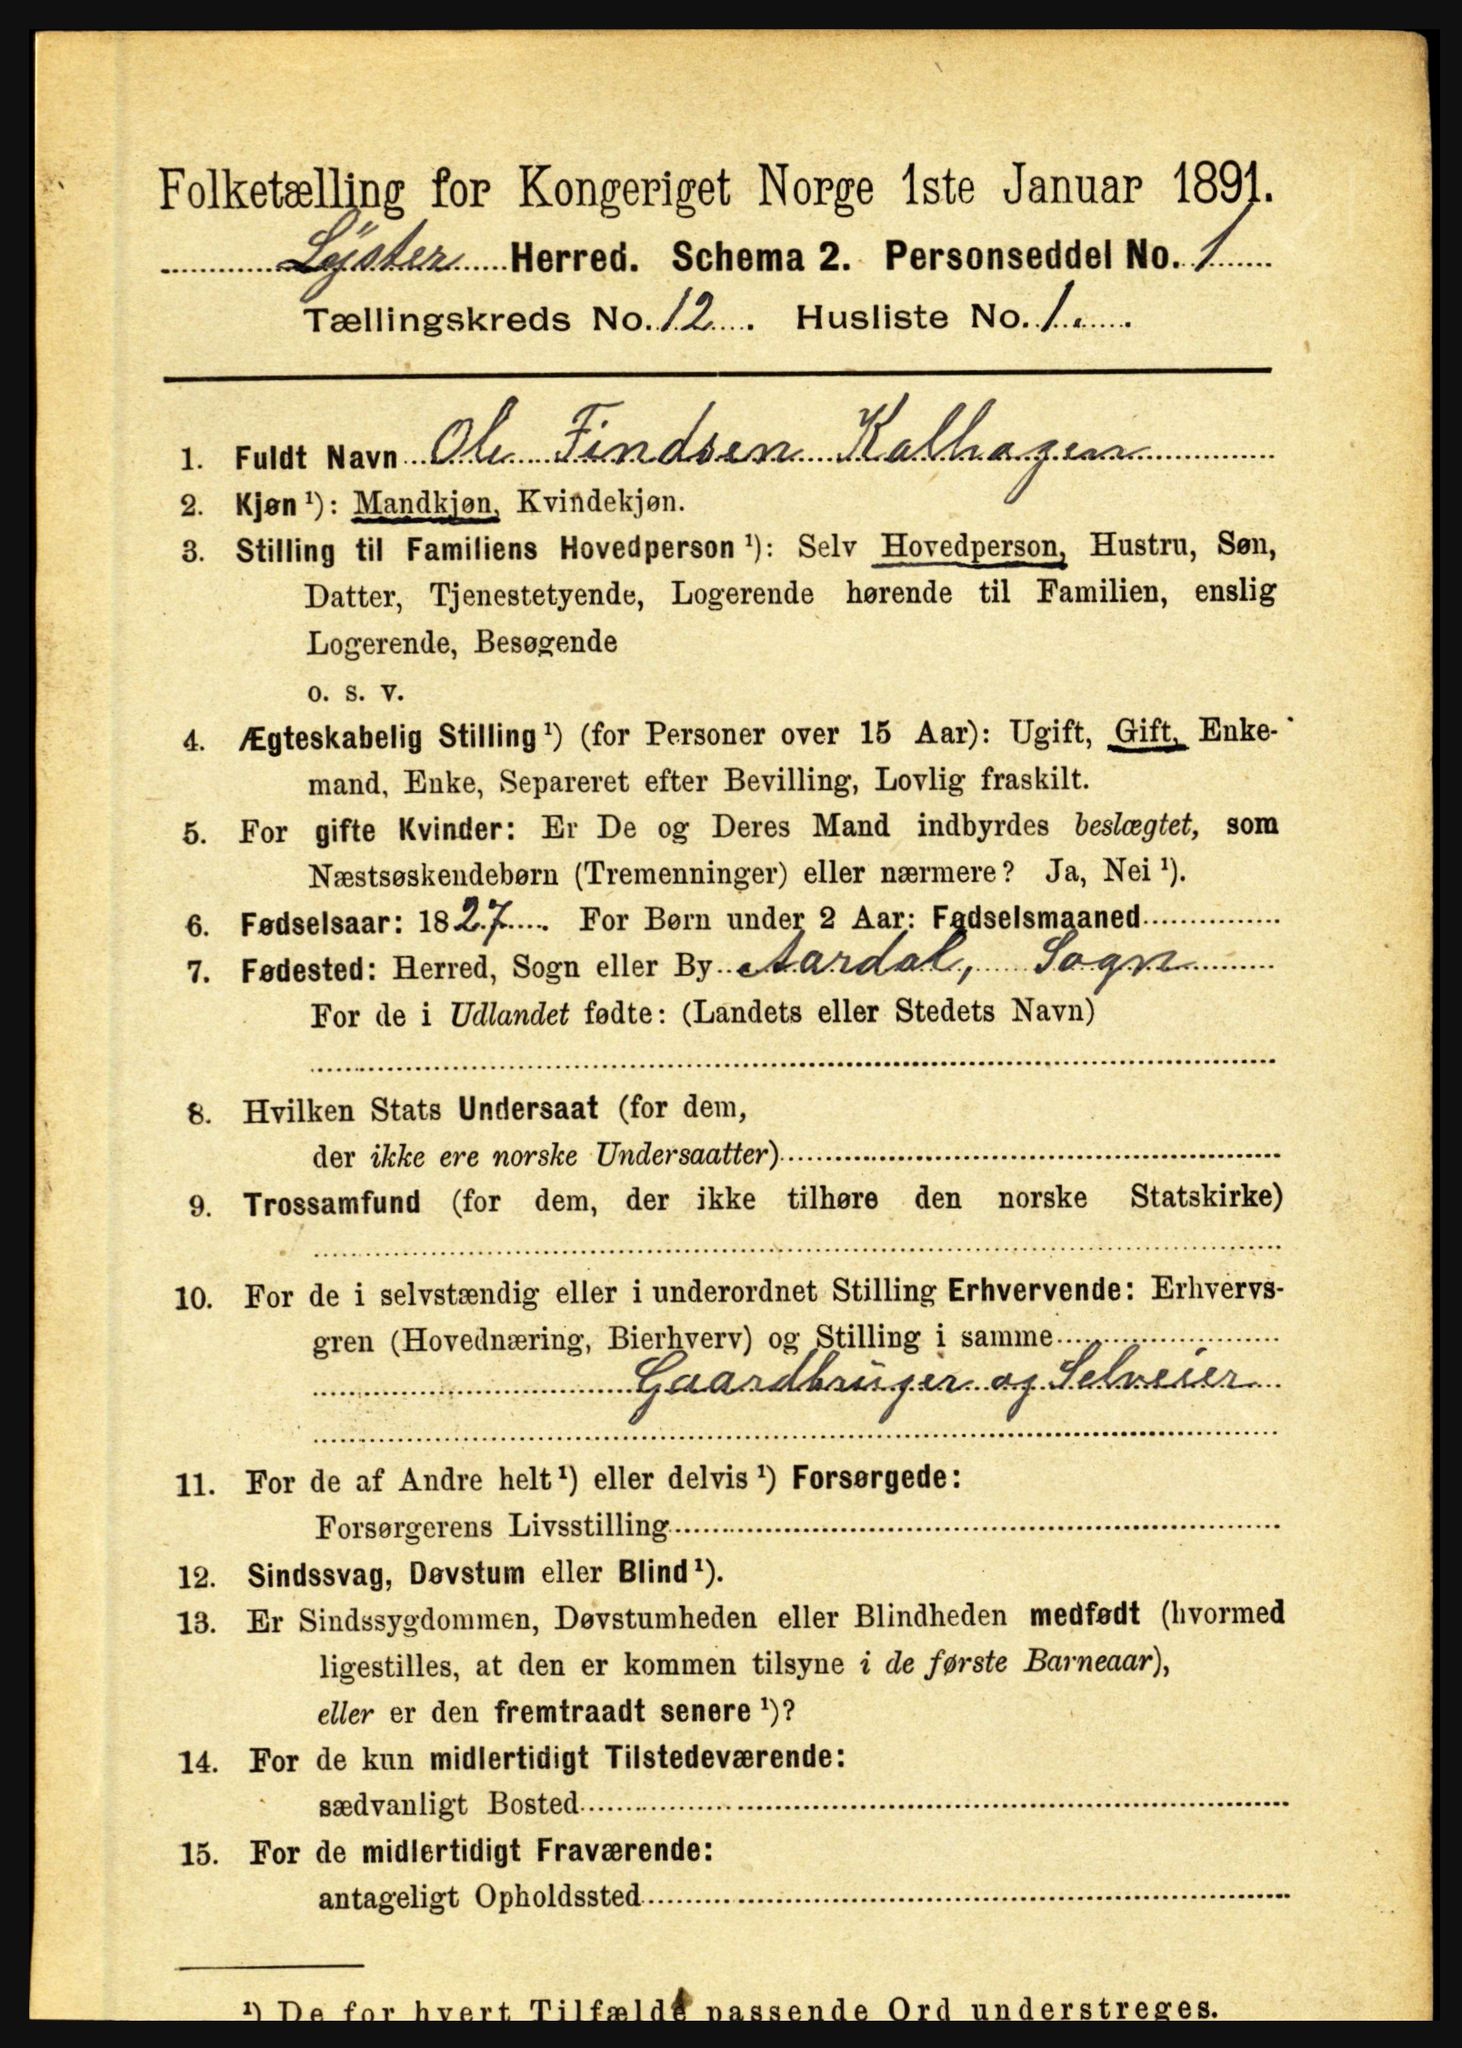 Folketælling for Kongeriget Norge 1ste Januar 1891.
Lyster Herred. Schema 2. Personseddel No. 1
Tællingskreds No. 12. Husliste No. 1.
1. Fuldt Navn Ole Findsen Kalhagen
2. Kjøn ¹): Mandkjøn, Kvindekjøn.
3. Stilling til Familiens Hovedperson ¹): Selv Hovedperson, Hustru, Søn,
Datter, Tjenestetyende, Logerende hørende til Familien, enslig
Logerende, Besøgende
o. s. v.
4. Ægteskabelig Stilling ¹) (for Personer over 15 Aar): Ugift, Gift, Enke-
mand, Enke, Separeret efter Bevilling, Lovlig fraskilt.
5. For gifte Kvinder: Er De og Deres Mand indbyrdes beslægtet, som
Næstsøskendebørn (Tremenninger) eller nærmere? Ja, Nei ¹).
6. Fødselsaar: 1827. For Børn under 2 Aar: Fødselsmaaned
7. Fødested: Herred, Sogn eller By Aardal, Sogn
For de i Udlandet fødte: (Landets eller Stedets Navn)
8. Hvilken Stats Undersaat (for dem,
der ikke ere norske Undersaatter)
9. Trossamfund (for dem, der ikke tilhøre den norske Statskirke)
10. For de i selvstændig eller i underordnet Stilling Erhvervende: Erhvervs-
gren (Hovednæring, Bierhverv) og Stilling i samme
Gaardbruger og Selveier
11. For de af Andre helt ¹) eller delvis ¹) Forsørgede:
Forsørgerens Livsstilling
12. Sindssvag, Døvstum eller Blind ¹).
13. Er Sindssygdommen, Døvstumheden eller Blindheden medfødt (hvormed
ligestilles, at den er kommen tilsyne i de første Barneaar),
eller er den fremtraadt senere ¹)?
14. For de kun midlertidigt Tilstedeværende:
sædvanligt Bosted
15. For de midlertidigt Fraværende:
antageligt Opholdssted
¹) De for hvert Tilfælde passende Ord understreges.